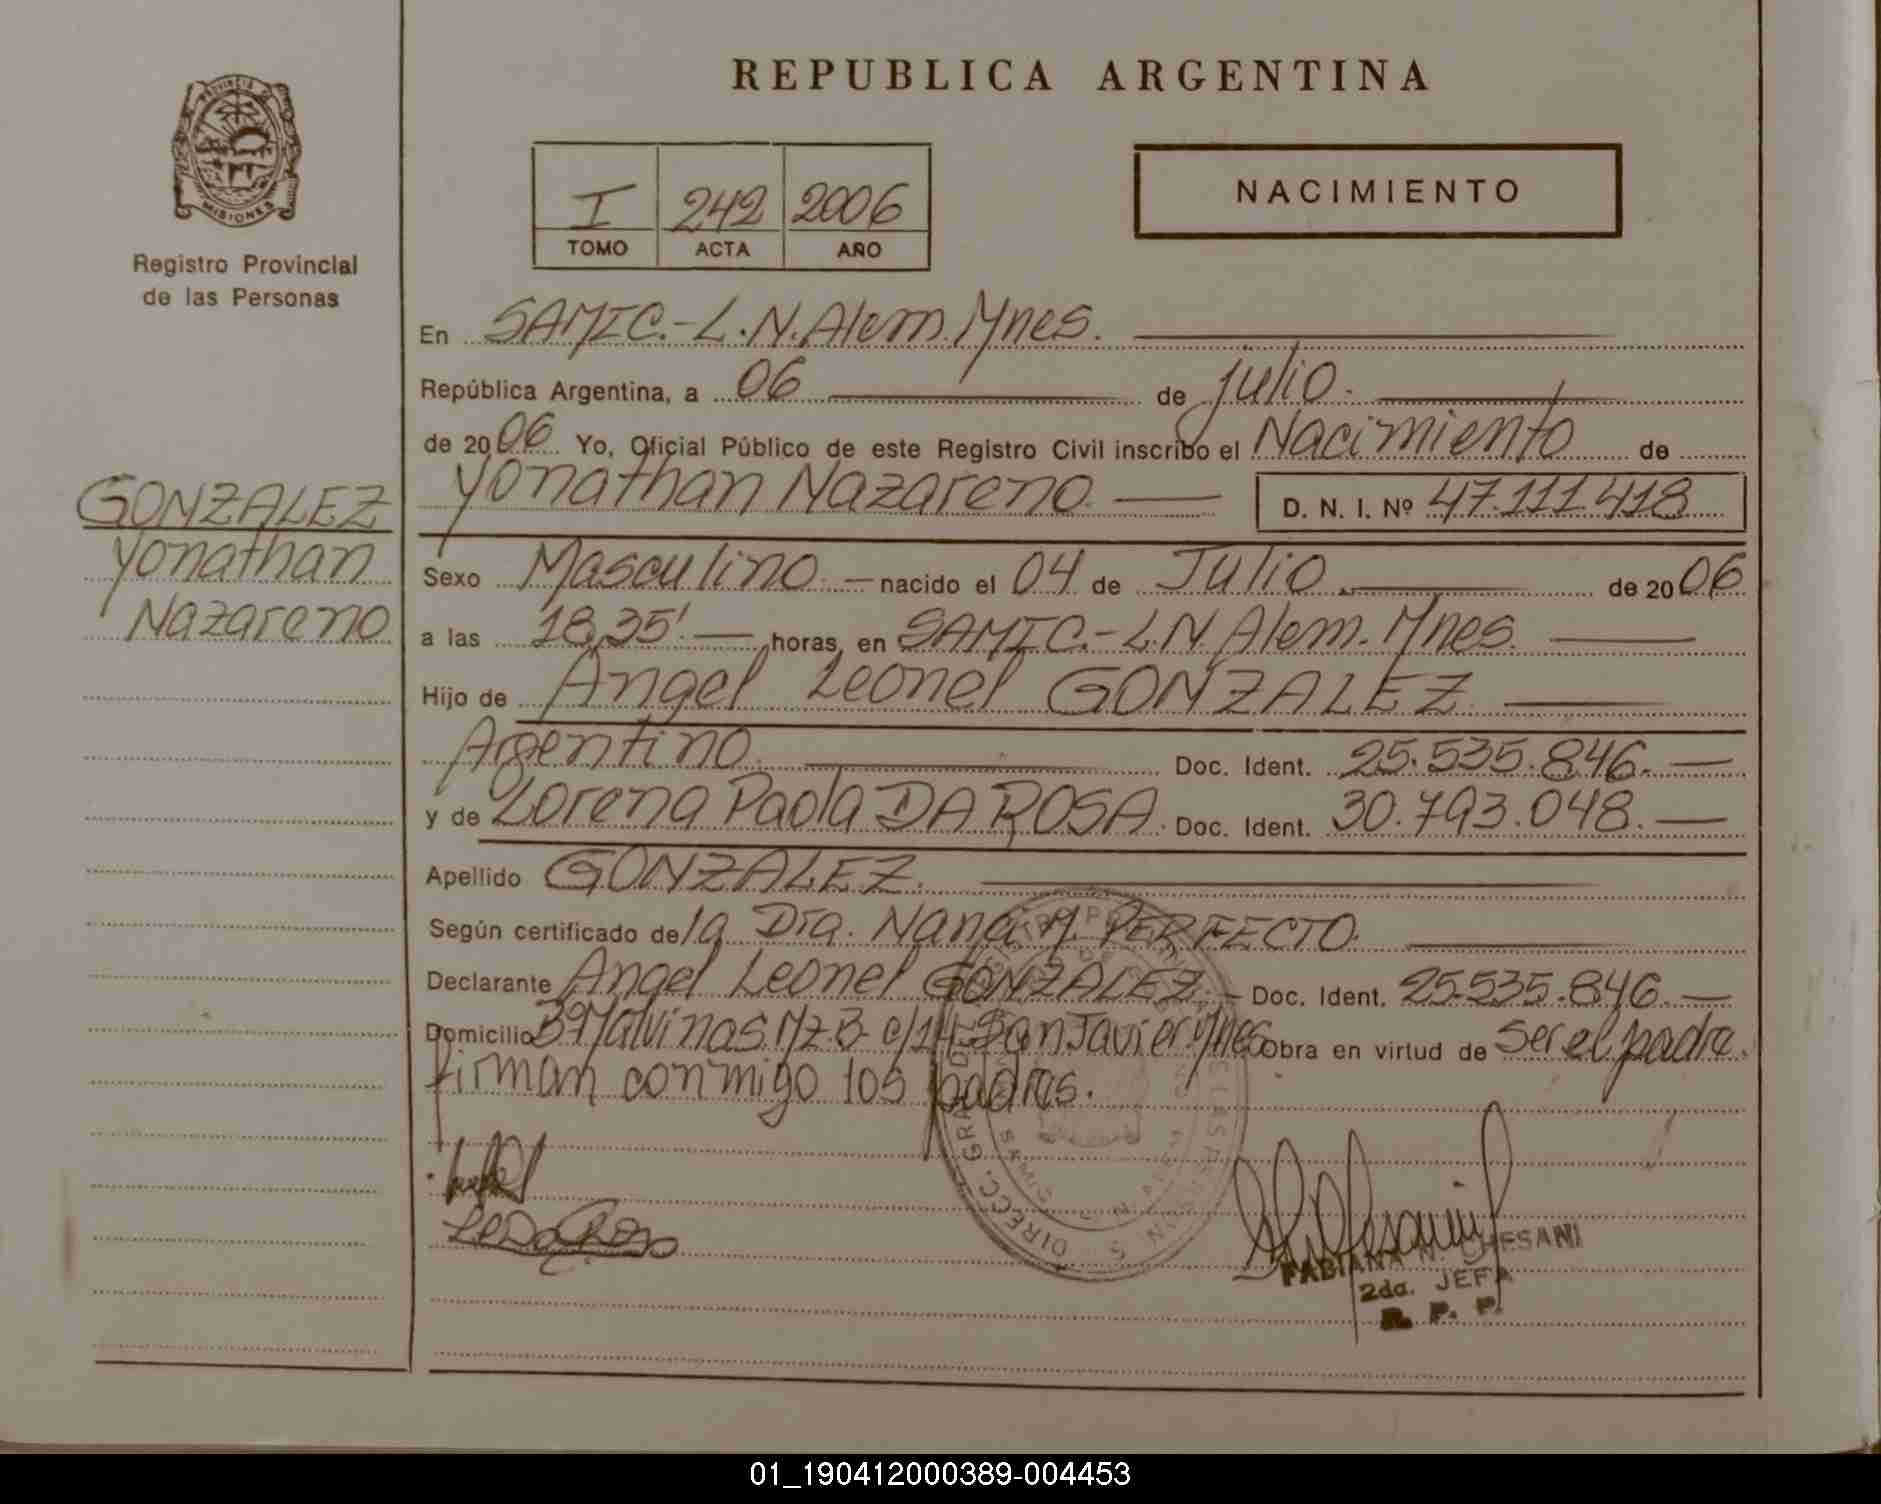 REPUBLICA ARGENTINA
PROVINCIA DE
MISIONES
Registro Provincial
de las Personas
I 242 2006
TOMO ACTA AÑO
NACIMIENTO
GONZALEZ
Yonathan
Nazareno
En SAMIC.-L.N.Alem.Mnes.
República Argentina, a 06 de julio.
de 2006 Yo, Oficial Público de este Registro Civil inscribo el Nacimiento de
Yonathan Nazareno. D. N. I. Nº 47.111.418
Sexo Masculino. nacido el 04 de Julio. de 2006
a las 18,35'. horas, en SAMIC.-L.N.Alem. Mnes.
Hijo de Angel Leonel GONZALEZ.
Argentino. Doc. Ident. 25.535.846.
y de Lorena Paola DA ROSA. Doc. Ident. 30.793.048.
Apellido GONZALEZ.
Según certificado de la Dra. M. PERFECTO.
Declarante Angel Leonel GONZALEZ. Doc. Ident. 25.535.846.
Domicilio Bº Malvinas.Mz.B- c/14.San Javier.Mnes Obra en virtud de ser el padre.
firman conmigo los padres.
FABIANA N. CHESANI
2da. JEFA
R. P. P.
01_190412000389-004453